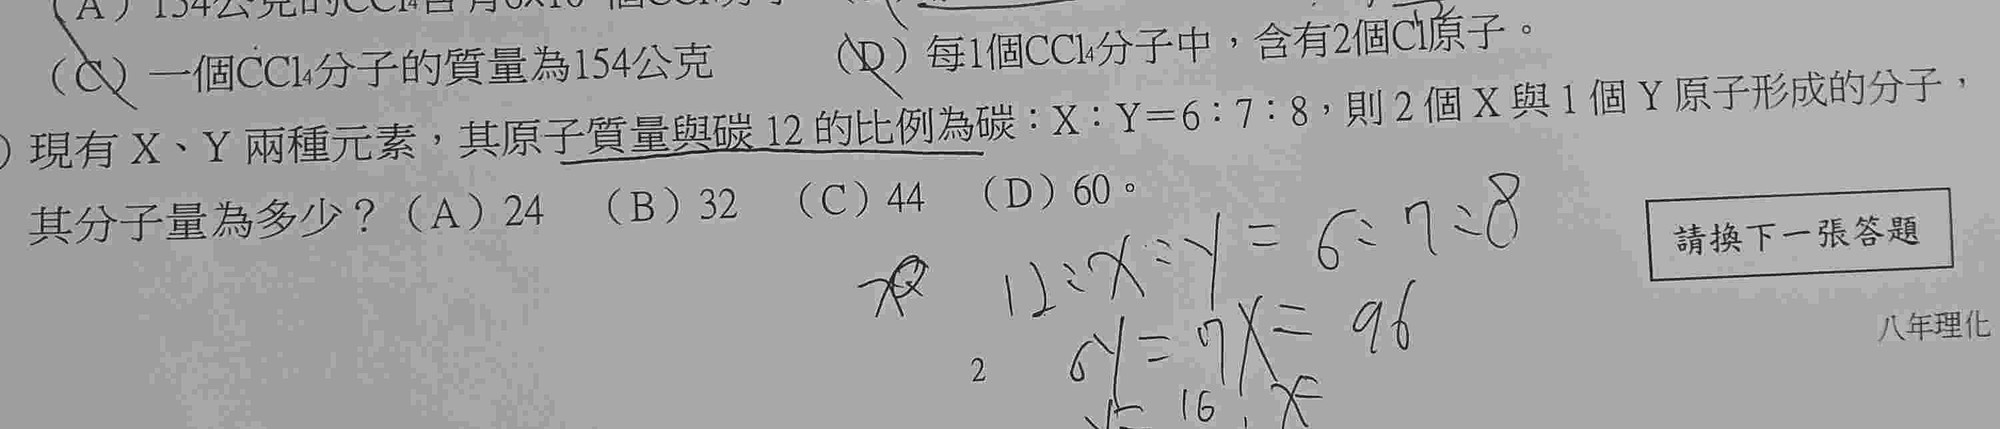 (A) 154公克的CCl₄含有6x10 個CCl
(C) 一個CCl₄分子的質量為154公克 (D) 每1個CCl₄分子中，含有2個Cl原子。
) 現有 X、Y 兩種元素，其原子質量與碳 12 的比例為碳：X：Y＝6：7：8，則 2 個 X 與 1 個 Y 原子形成的分子，
其分子量為多少？(A) 24 (B) 32 (C) 44 (D) 60。
請換下一張答題
12:X:Y=6:7:8
6Y=7X=96
八年理化
2
Y= 16 , X=